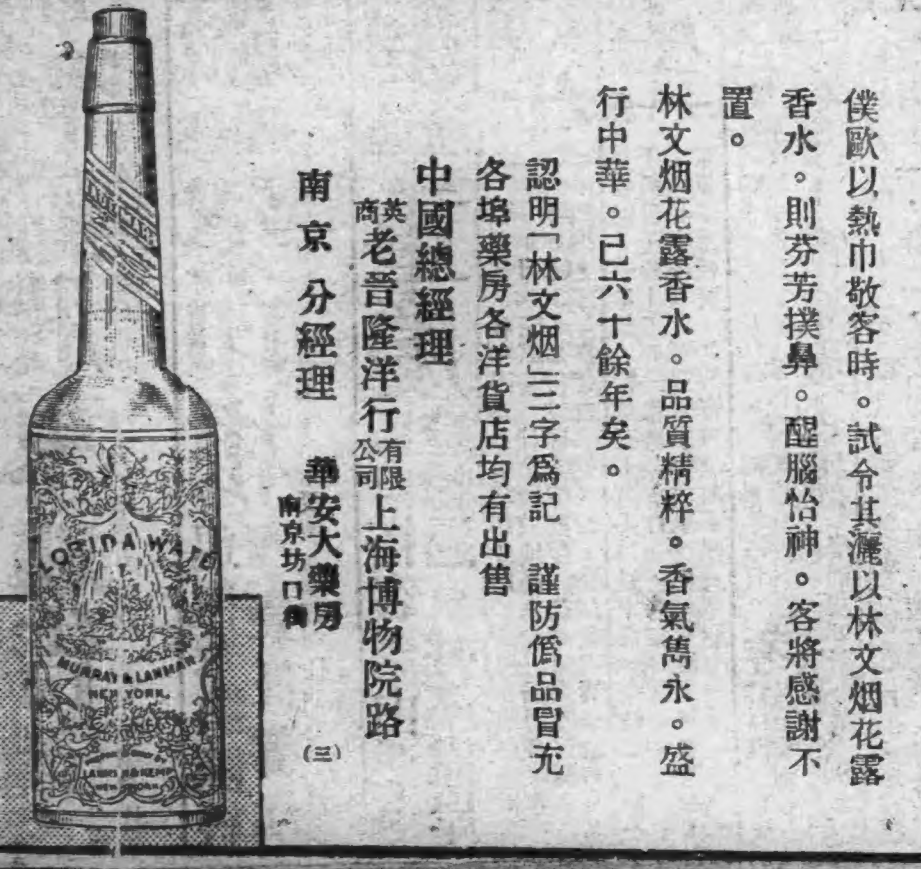 僕歐以熱巾敬客時。試令其灑以林文烟花露
香水。則芬芳撲鼻。醒腦怡神。客將感謝不
置。
林文烟花露香水。品質精粹。香氣雋永。盛
行中華。已六十餘年矣。
認明「林文烟」三字爲記 謹防僞品冒充
各埠藥房各洋貨店均有出售
中國總經理
英商老晉隆洋行有限公司上海博物院路
南京分經理 華安大藥房
南京坊口
(三)
FLORIDA WATER
MURRAY & LANMAN
NEW YORK.
LANMAN & KEMP
NEW YORK